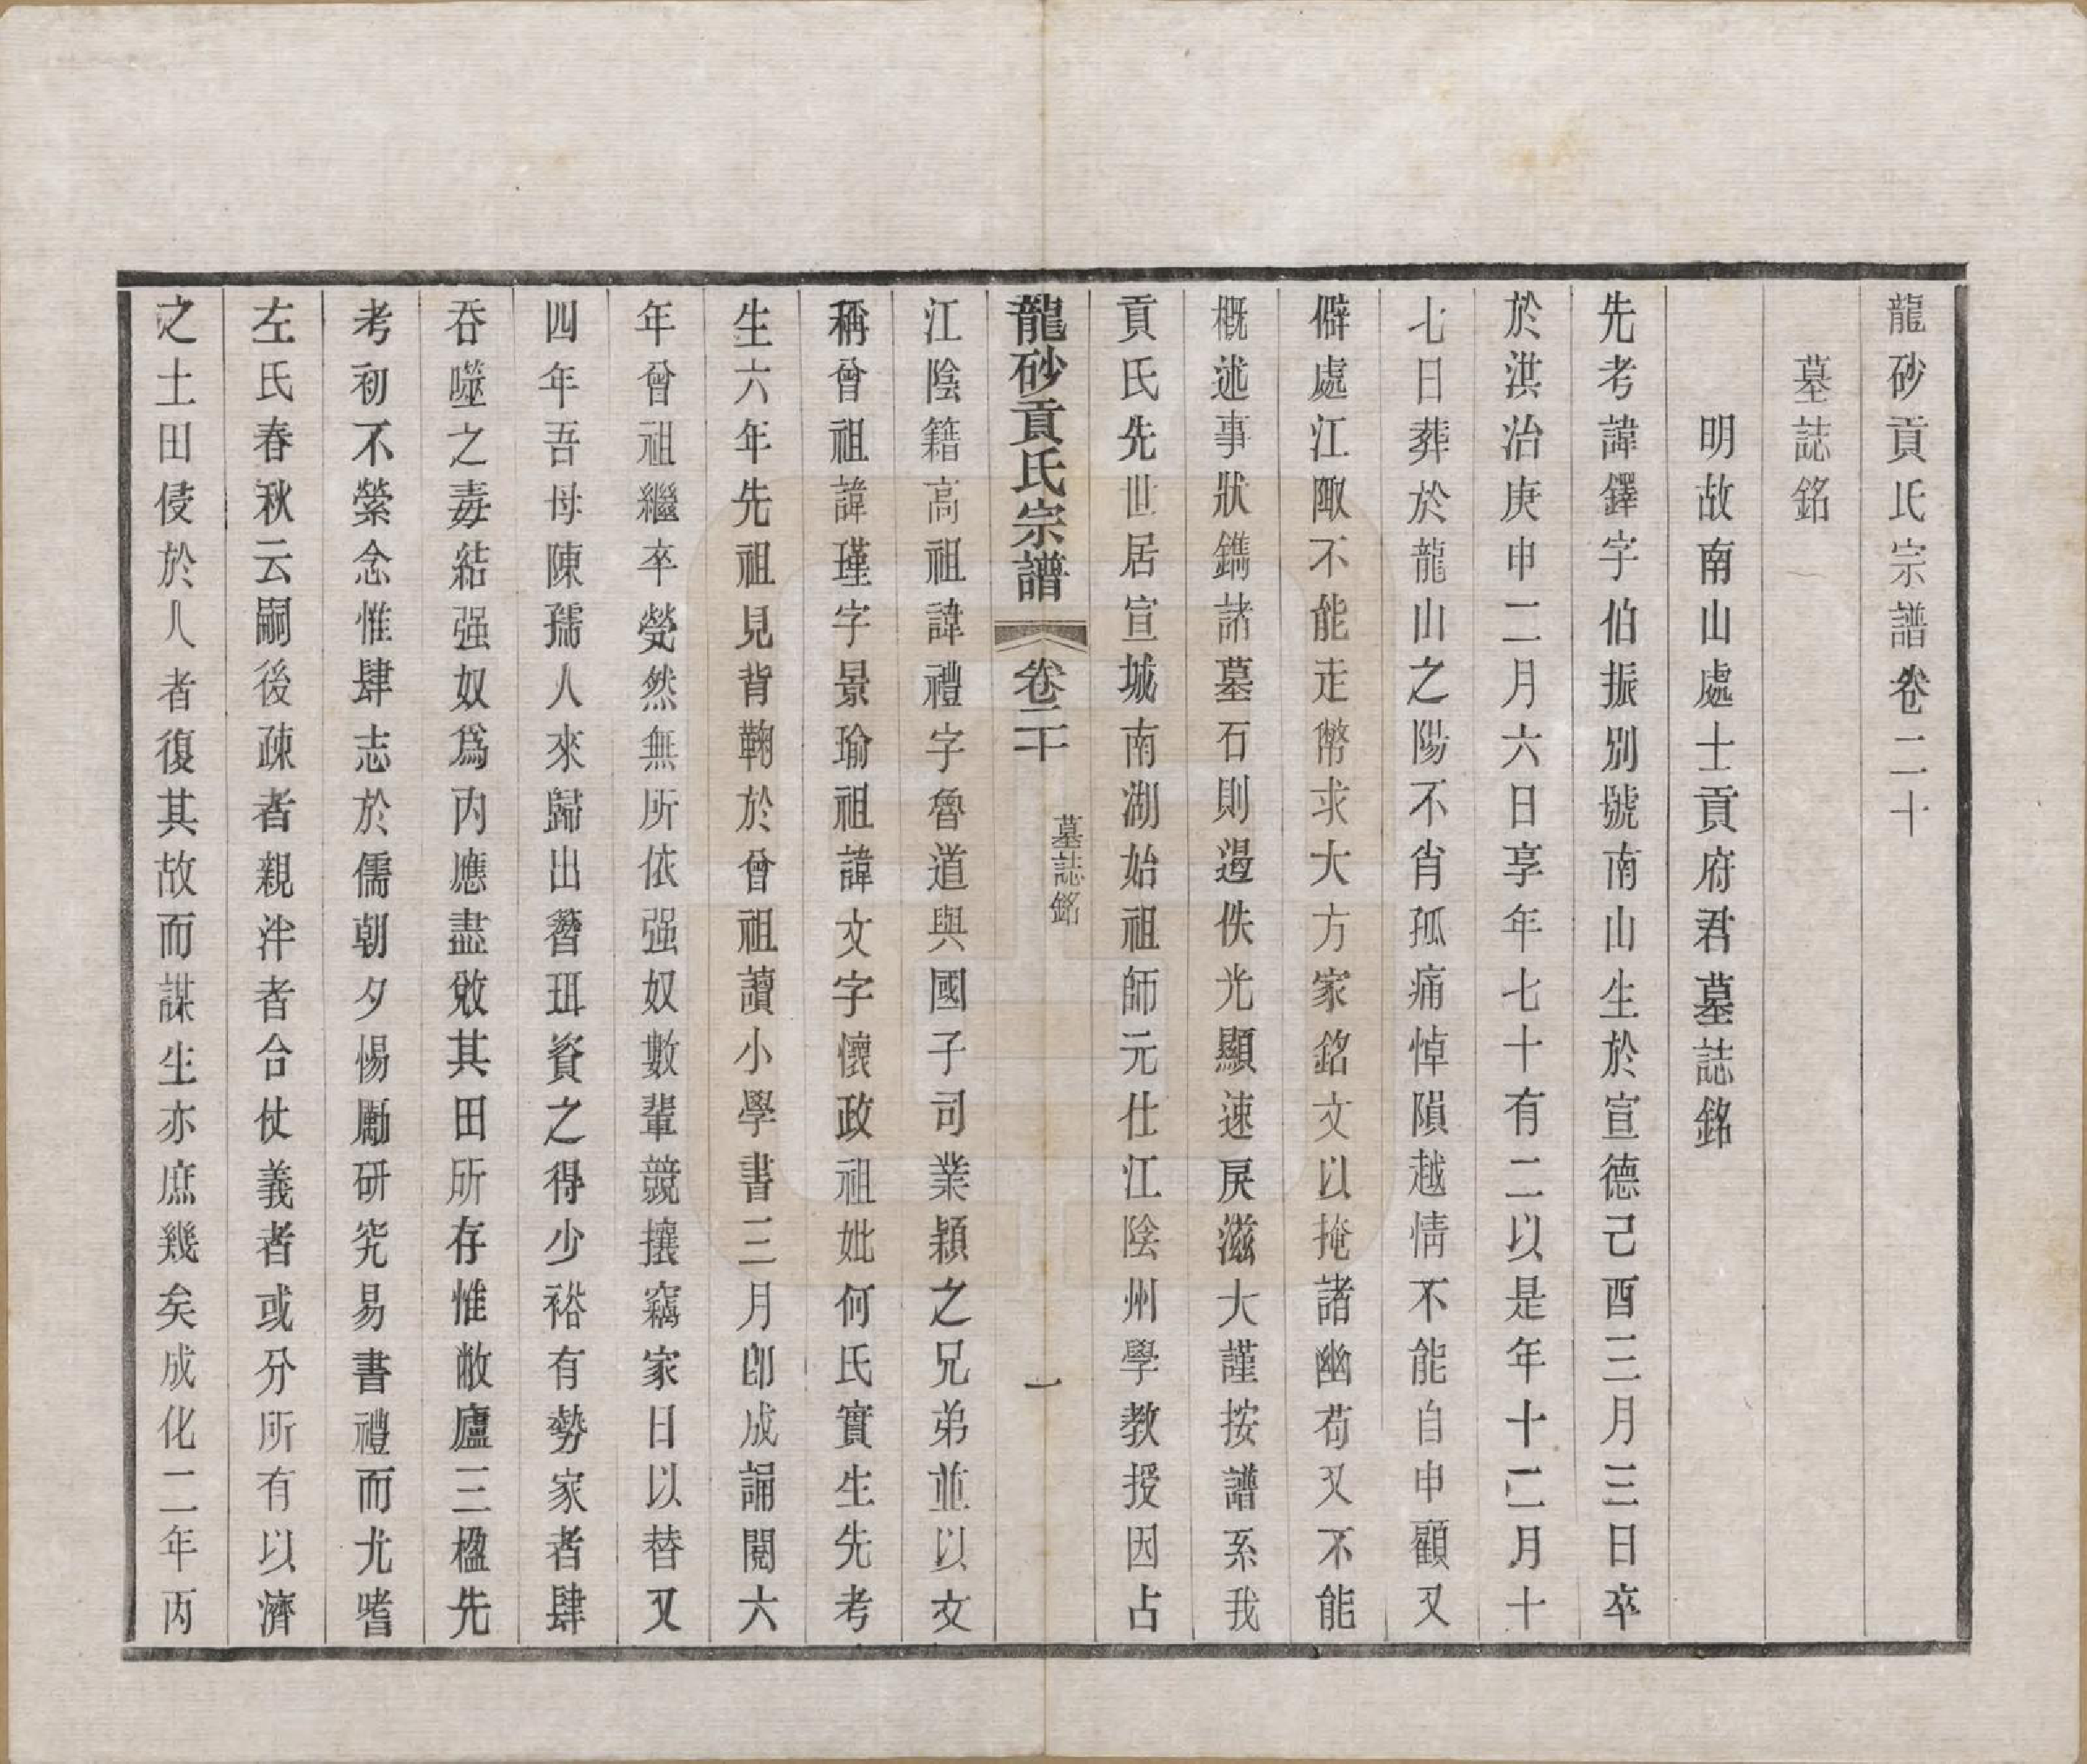 龍砂貢氏宗譜卷二十
墓誌銘
明故南山處士貢府君墓誌銘
先考諱鐸字伯振別號南山生於宣德己酉三月三日卒
於洪治庚申二月六日享年七十有二以是年十二月十
七日葬於龍山之陽不肖孤痛悼隕越情不能自申顧又
僻處江陬不能走幣求大方家銘文以掩諸幽苟又不能
概述事狀鐫諸墓石則遏佚光顯速戾滋大謹按譜系我
貢氏先世居宣城南湖始祖師元仕江陰州學教授因占
龍砂貢氏宗譜 卷二十 墓誌銘 一
江陰籍高祖諱禮字魯道與國子司業穎之兄弟並以文
稱曾祖諱瑾字景瑜祖諱文字懷政祖妣何氏實生先考
生六年先祖見背鞠於曾祖讀小學書三月卽成誦閱六
年曾祖繼卒煢然無所依强奴數輩競攘竊家日以替又
四年吾母陳孺人來歸出簪珥資之得少裕有勢家者肆
吞噬之毒結强奴爲內應盡敓其田所存惟敝廬三楹先
考初不縈念惟肆志於儒朝夕惕勵研究易書禮而尤嗜
左氏春秋云嗣後疎者親泮者合仗義者或分所有以濟
之土田侵於人者復其故而謀生亦庶幾矣成化二年丙